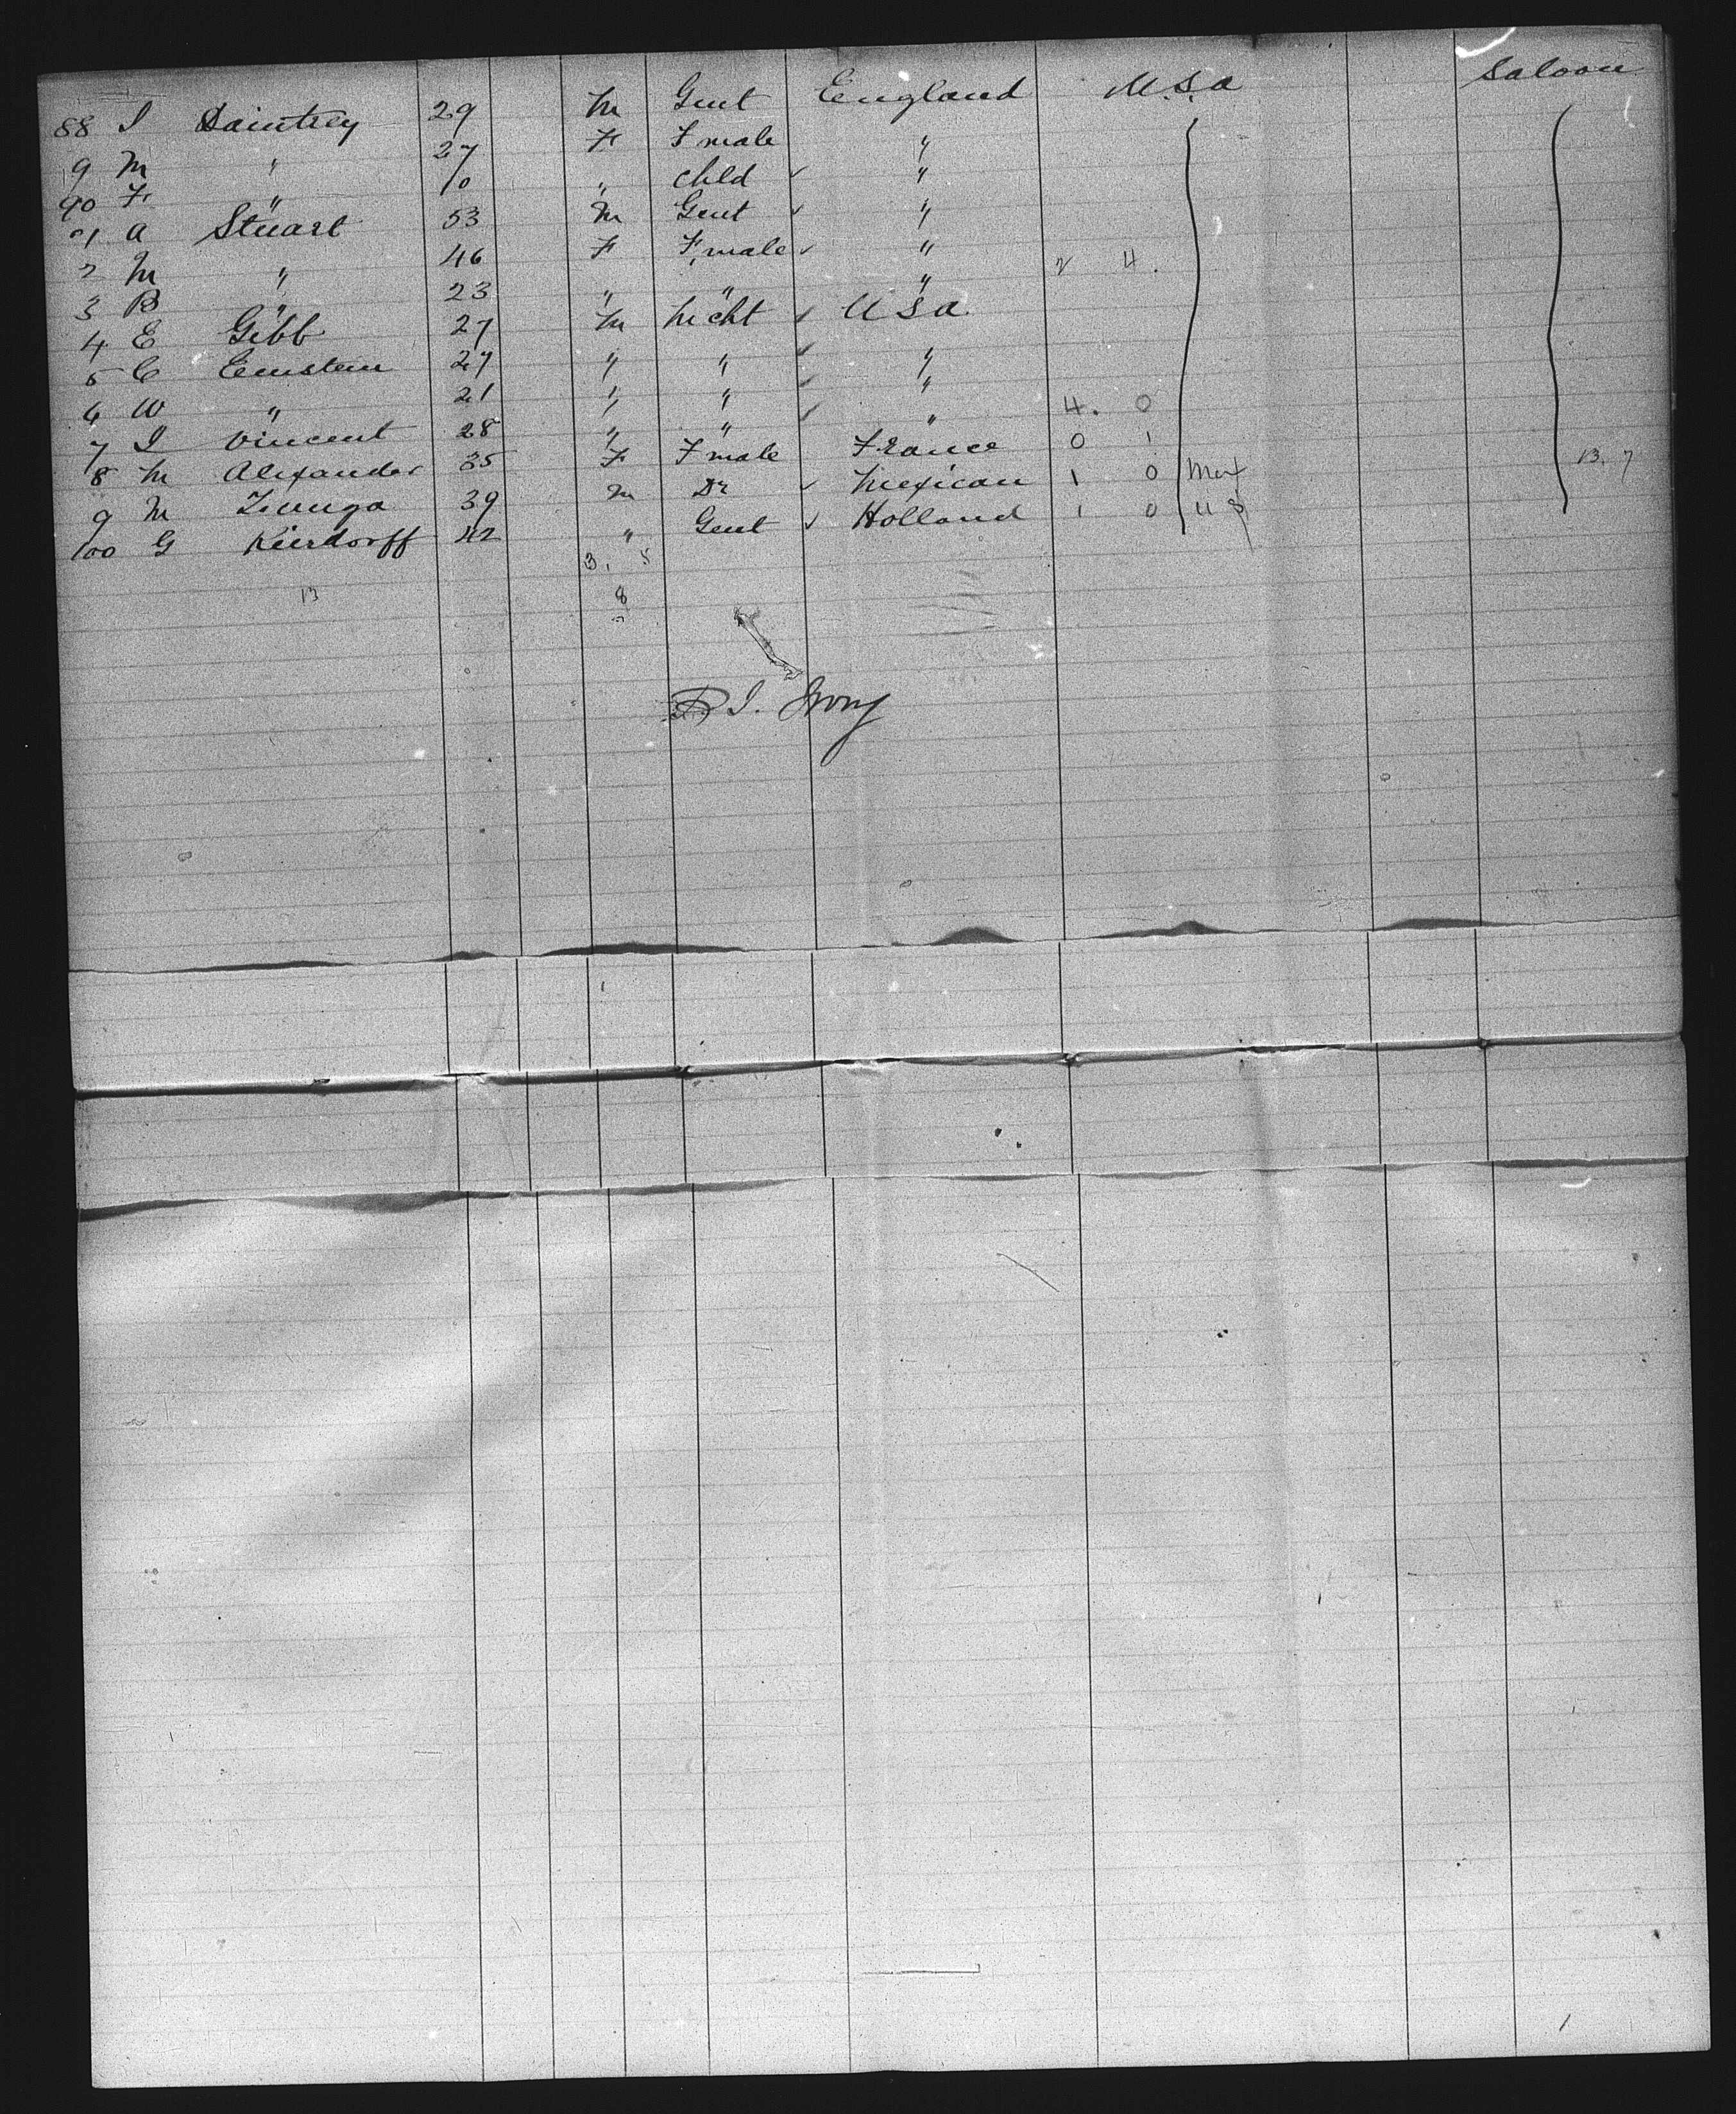 88 I Daintrey 29 M Gent England U.S.A Saloon
9 M " 27 F Fmale "
90 F " 10 " Chld "
91 A Stuart 53 M Gent "
2 M " 46 F Fmale " 2 4.
3 B " 23 " " "
4 E Gibb 27 M Mcht U S A
5 C Einstein 27 " " "
6 W " 21 " " "
7 I Vincent 28 " " " 4. 0
8 M Alexander 35 F Fmale France 0 1 13. 7
9 M Zuniga 39 M Dr Mexican 1 0 Mex
100 G Kierdorff 42 " Gent Holland 1 0 U S
3. 5
13 8